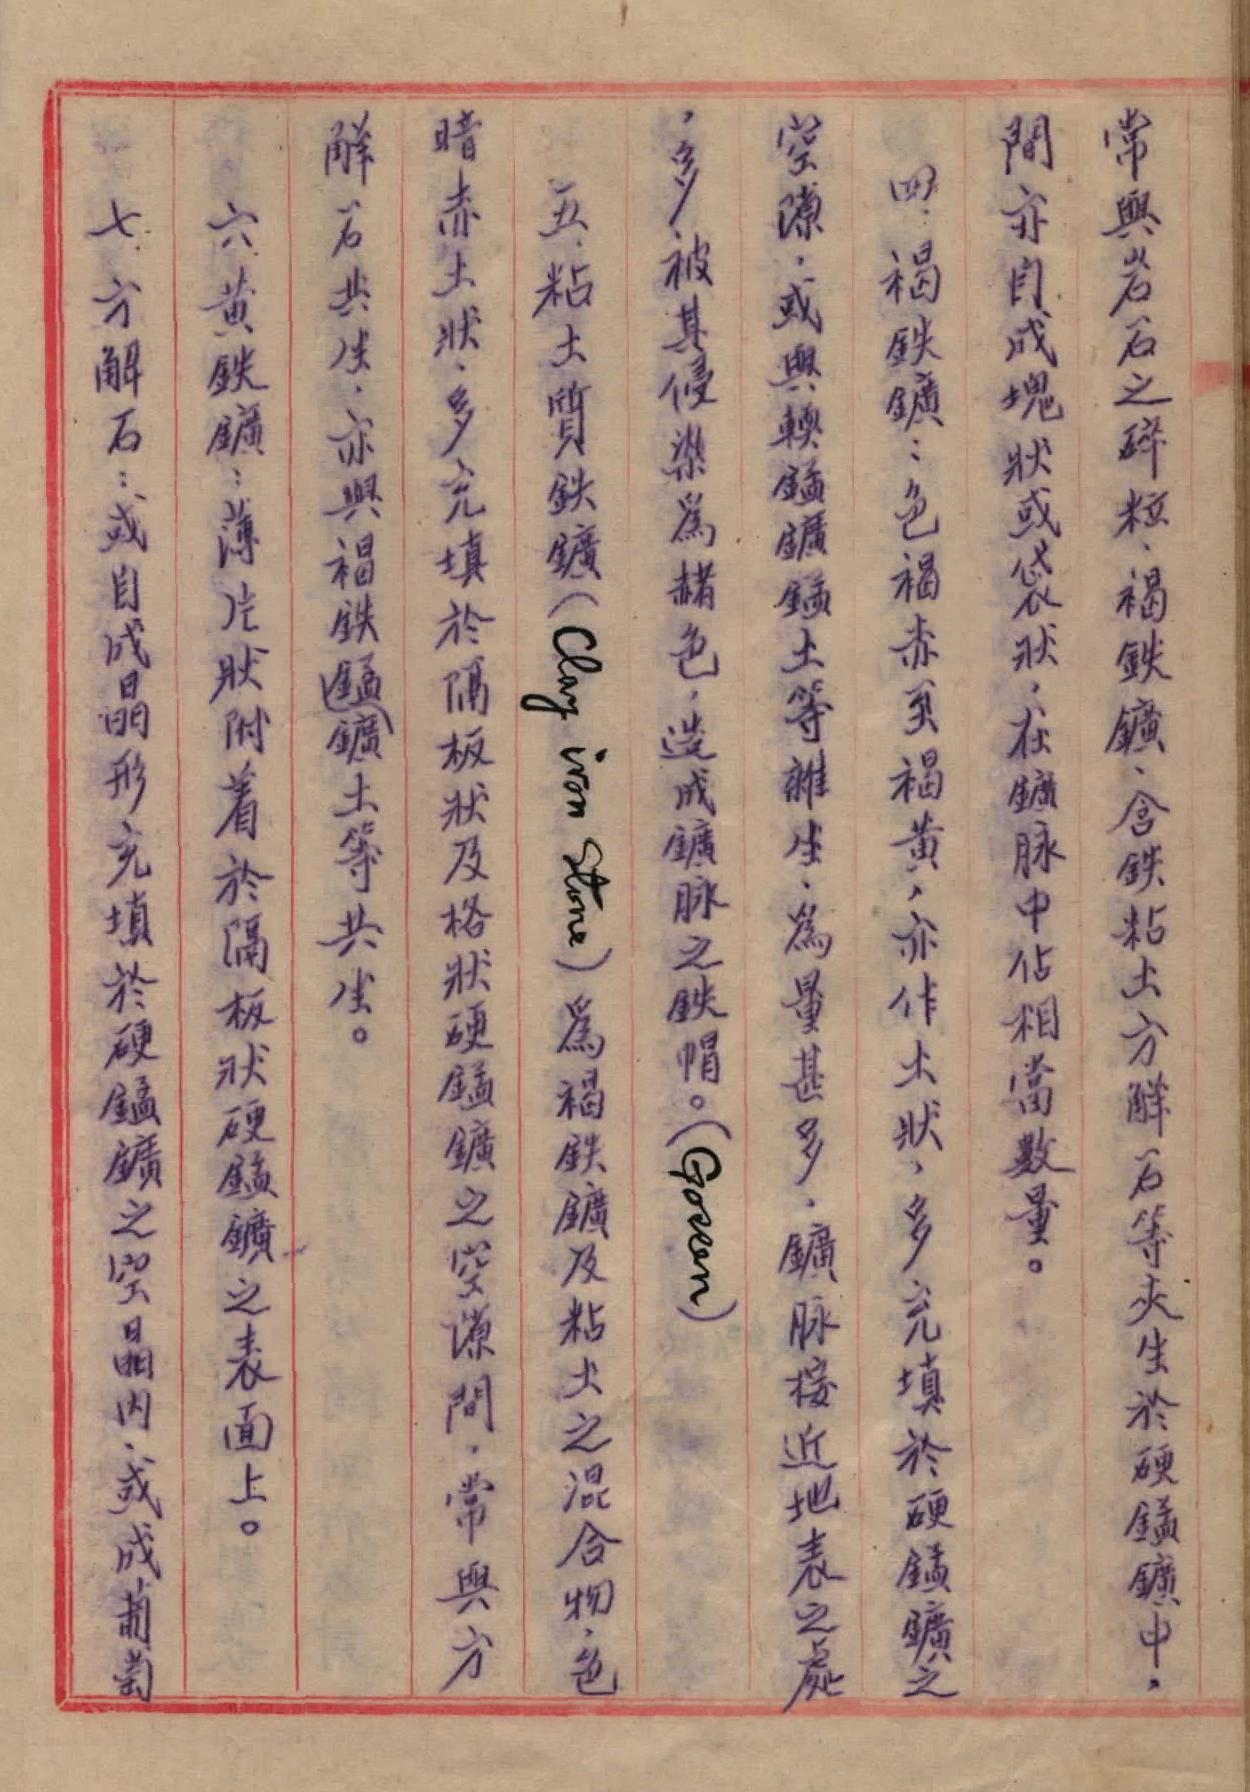 常與岩石之碎粒、褐鉄鑛、含鉄粘土方解石等夾生於硬錳鑛中，
間亦自成塊狀或袋狀，在鑛脉中佔相當數量。
四、褐鉄鑛：色褐赤至褐黄，亦作土狀，多充填於硬錳鑛之
空隙，或與軟錳鑛錳土等雜生，為量甚多，鑛脉接近地表之處
，多被其侵染為赭色，造成鑛脉之鉄帽。(Gossen)
五、粘土質鉄鑛(Clay iron Stone)為褐鉄鑛及粘土之混合物，色
暗赤土狀，多充填於隔板狀及格狀硬錳鑛之空隙間，常與方
解石共生，亦與褐鉄錳鑛土等共生。
六、黄鉄鑛：薄片狀附着於隔板狀硬錳鑛之表面上。
七、方解石：或自成晶形充填於硬錳鑛之空晶内，或成葡萄